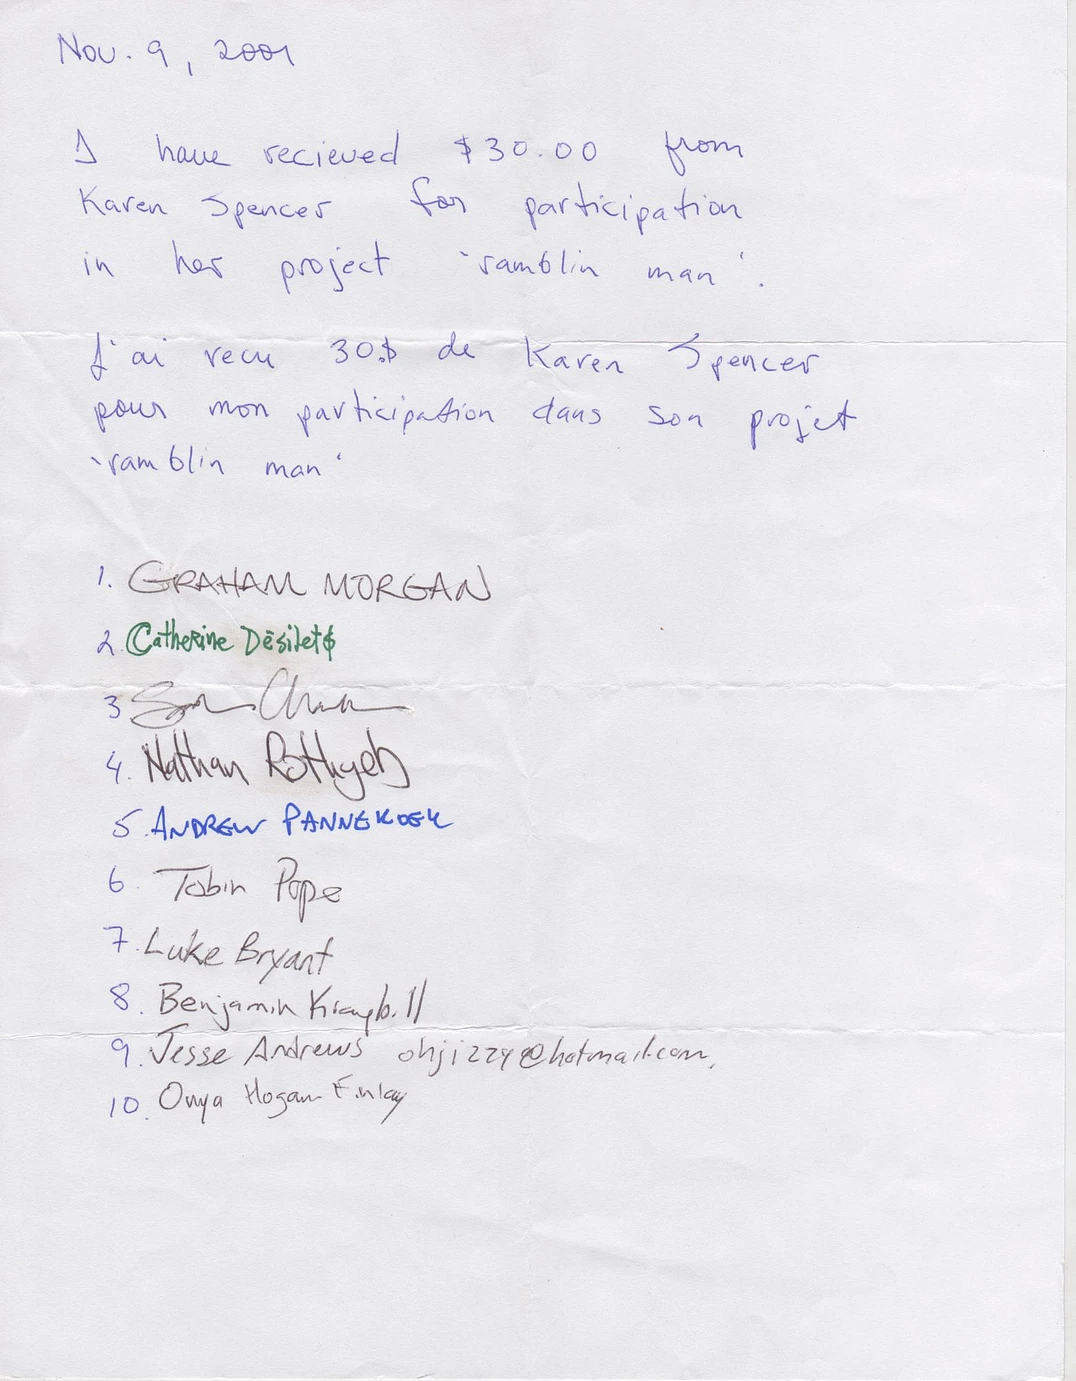 Nov. 9, 2001
I have recieved $30.00 from
Karen Spencer for participation
in her project 'ramblin man'.
J'ai recu 30$ de Karen Spencer
pour mon participation dans son projet
'ramblin man'
1. GRAHAM MORGAN
2. Catherine Désilets
3
4. Nathan
5. ANDREW PANNEKOEK
6. Tobin Pope
7. Luke Bryant
8. Benjamin
9. Jesse Andrews
10. Onya Hogan-Finlay